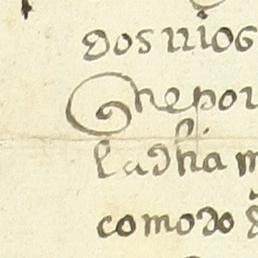 dos rrios
que por
la dha m
como do q